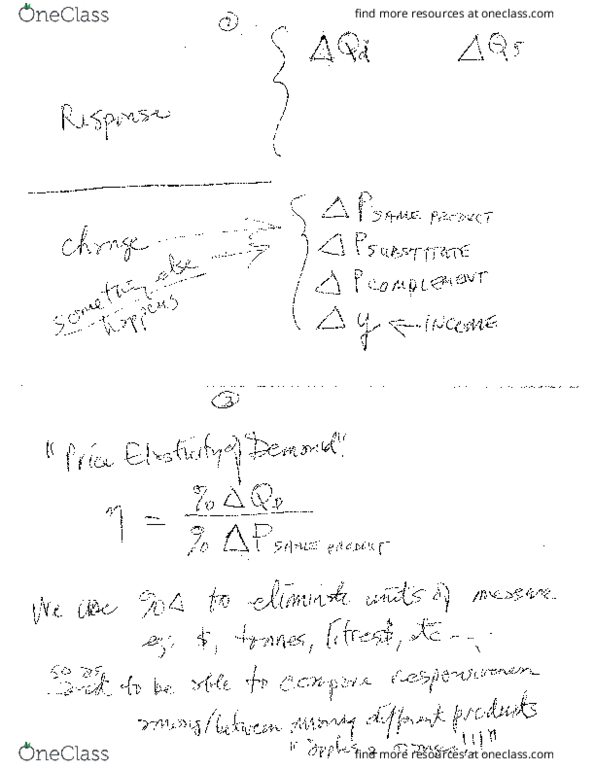 OneClass find more resources at oneclass.com
②
ΔQd ΔQs
Response
Change
something else
happens
ΔP SAME PRODUCT
ΔP SUBSTITUTE
ΔP COMPLEMENT
Δ y ← INCOME
③
"Price Elasticity of Demand"
η = %ΔQD
% ΔP SAME PRODUCT
We use %Δ to eliminate units of measure
eg: $, tonnes, litres, etc
so as
to be able to compare responsiveness
among/between many different products
"apples
OneClass find more resources at oneclass.com